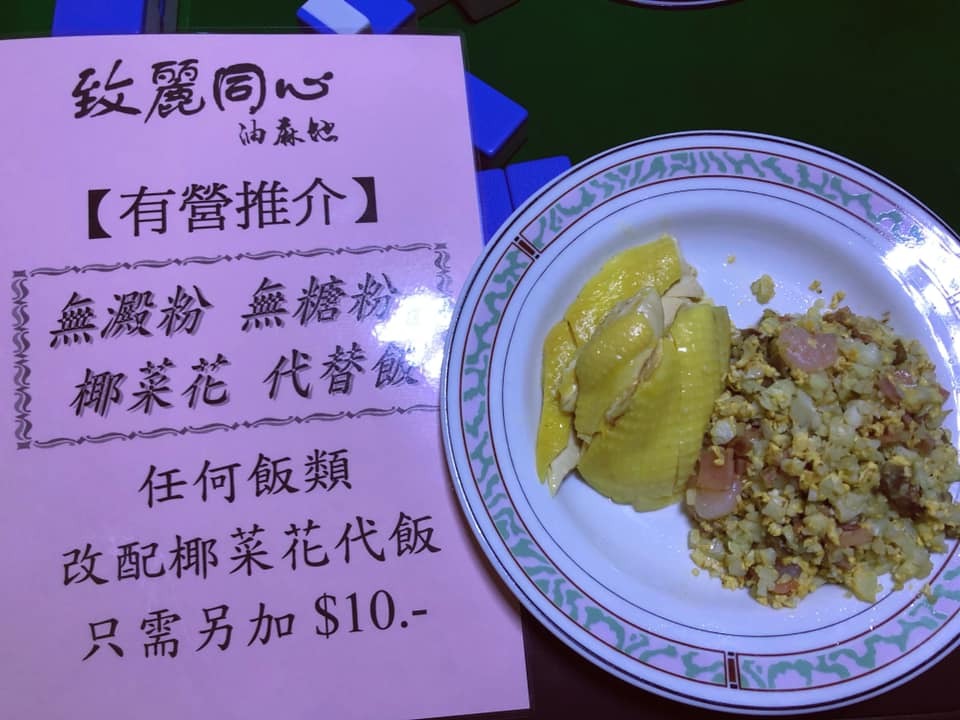 致麗同心
油麻地
【有營推介】
無澱粉 無糖粉
椰菜花 代替飯
任何飯類
改配椰菜花代飯
只需另加 $10.-